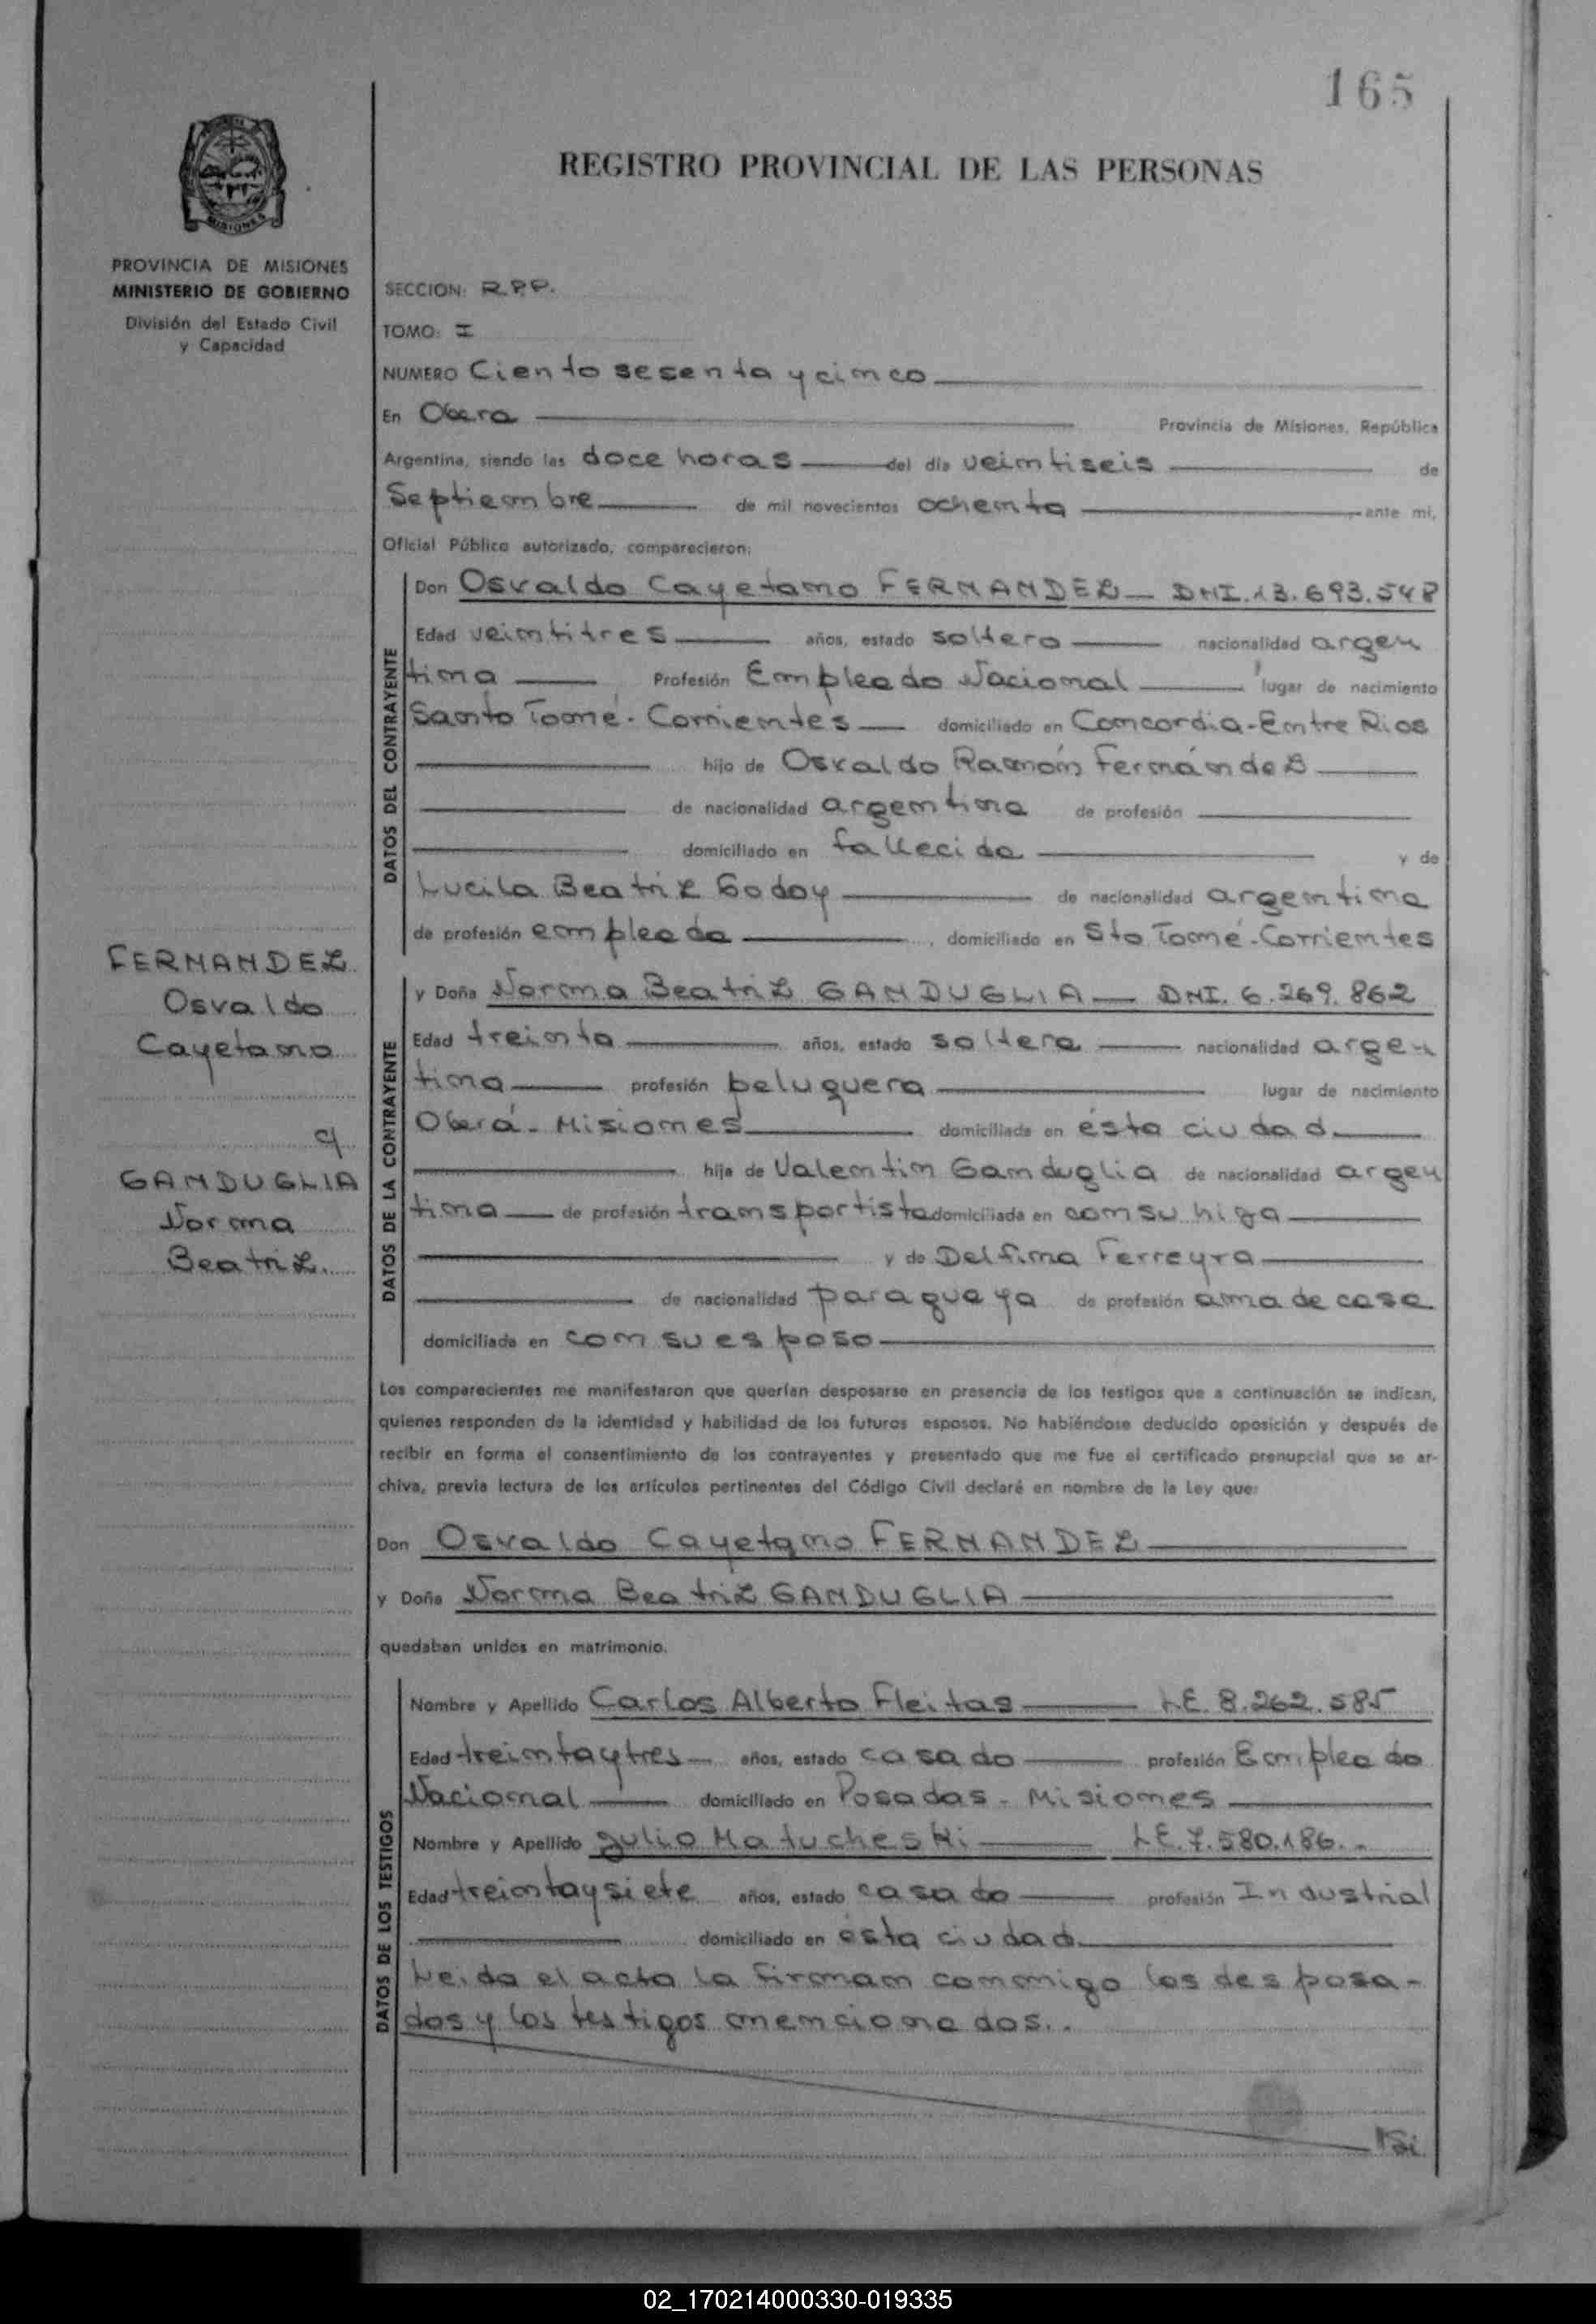 165
REGISTRO PROVINCIAL DE LAS PERSONAS
MISIONES
PROVINCIA DE MISIONES
MINISTERIO DE GOBIERNO
División del Estado Civil
y Capacidad
SECCION: R.P.P.
TOMO: I
NUMERO Ciento sesenta y cinco
En Obera Provincia de Misiones, República
Argentina, siendo las doce horas del día veintiseis de
Septiembre de mil novecientos ochenta ante mí,
Oficial Público autorizado, comparecieron:
DATOS DEL CONTRAYENTE
Don Osvaldo Cayetano FERNANDEZ DNI. 13.693.548
Edad veintitres años, estado soltero nacionalidad argen
tina Profesión Empleado Nacional lugar de nacimiento
Santo Tomé - Corrientes domiciliado en Concordia-Entre Rios
hijo de Osvaldo Ramón Fernández
de nacionalidad argentina de profesión
domiciliado en fallecido y de
Lucila Beatriz Godoy de nacionalidad argentina
de profesión empleada, domiciliada en Sto Tomé-Corrientes
FERNANDEZ
Osvaldo
Cayetano
y
GANDUGLIA
Norma
Beatriz.
DATOS DE LA CONTRAYENTE
y Doña Norma Beatriz GANDUGLIA DNI. 6.269.862
Edad treinta años, estado soltera nacionalidad argen
tina profesión peluquera lugar de nacimiento
Oberá - Misiones domiciliada en ésta ciudad
hija de Valentin Ganduglia de nacionalidad argen
tina de profesión transportista domiciliada en con su hija
y de Delfina Ferreyra
de nacionalidad paragueya de profesión ama de casa
domiciliada en con su esposo
Los comparecientes me manifestaron que querían desposarse en presencia de los testigos que a continuación se indican,
quienes responden de la identidad y habilidad de los futuros esposos. No habiéndose deducido oposición y después de
recibir en forma el consentimiento de los contrayentes y presentado que me fue el certificado prenupcial que se ar-
chiva, previa lectura de los artículos pertinentes del Código Civil declaré en nombre de la Ley que:
Don Osvaldo Cayetano FERNANDEZ
y Doña Norma Beatriz GANDUGLIA
quedaban unidos en matrimonio.
DATOS DE LOS TESTIGOS
Nombre y Apellido Carlos Alberto Fleitas L.E. 8.262.585
Edad treinta y tres años, estado casado profesión Empleado
Nacional domiciliado en Posadas - Misiones
Nombre y Apellido Julio Matucheski L.E. 7.580.186..
Edad treinta y siete años, estado casado profesión Industrial
domiciliado en ésta ciudad
Leida el acta la firman conmigo los desposa-
dos y los testigos mencionados..
02_170214000330-019335